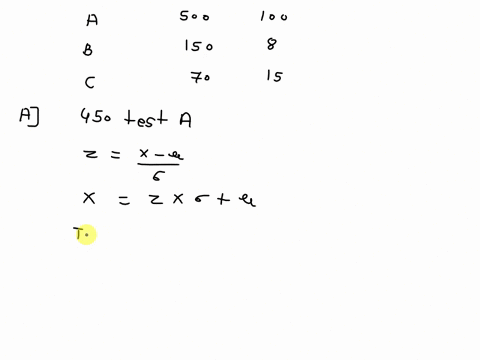 A 500 100
B 150 8
C 70 15
A] 450 test A
z = x - μ / σ
x = z × σ + μ
T.